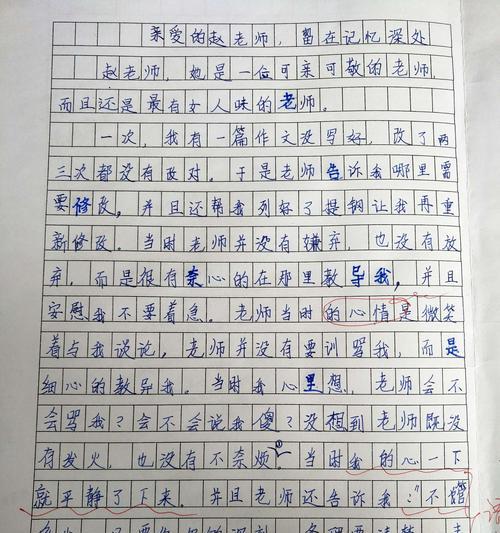 亲爱的赵老师,留在记忆深处
赵老师,她是一位可亲可敬的老师,
而且还是最有女人味的老师。
一次,我有一篇作文没写好,改了两
三次都没有改对。于是老师告诉我哪里需
要修改,并且还帮我列好了提钢让我再重
新修改。当时老师并没有嫌弃,也没有放
弃,而是很有奈心的在那里教导我,并且
安慰我不要着急。老师当时的心情是微笑
着与我谈论,老师并没有要训骂我,而是
细心的教导我。当时我心里想,老师会不
会骂我?会不会说我傻?没想到老师既没
有发火,也没有不奈烦。当时我的心一下
就平静了下来。并且老师还告诉我:"不管